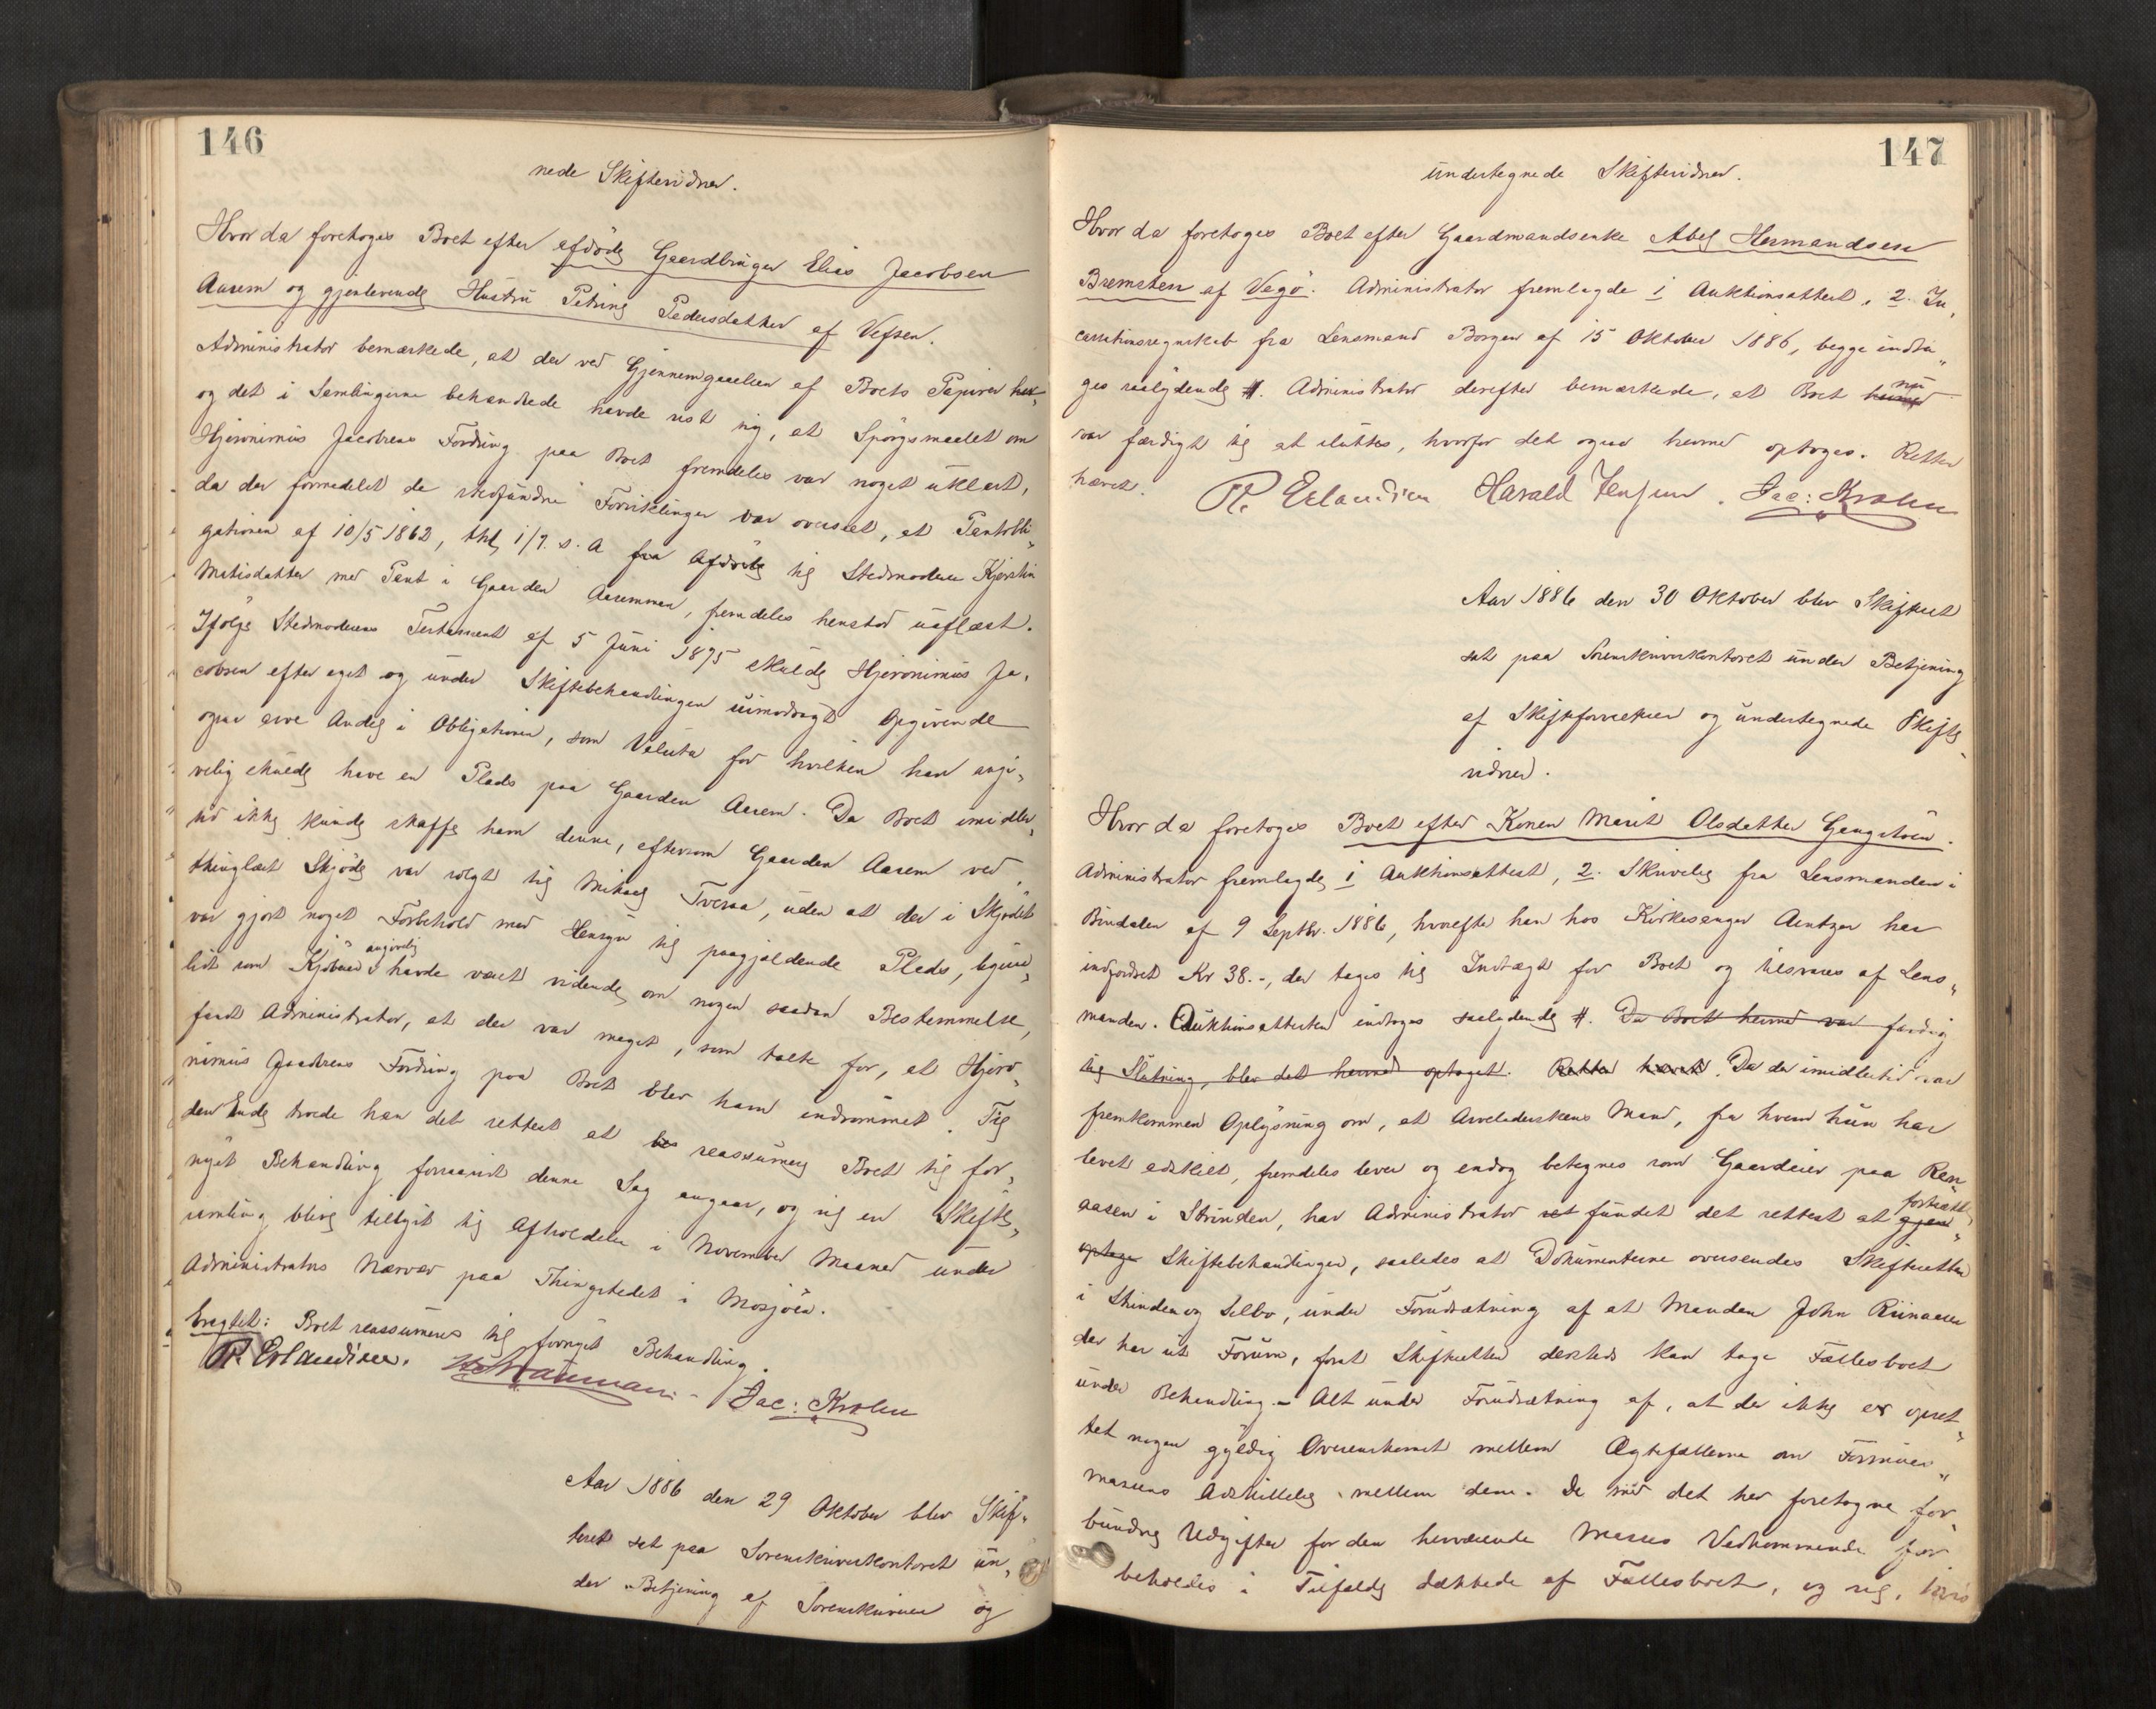 146
nede Skiftevidner.
Hvor da foretoges Boet efter afdöde Gaardbruger Elias Jacobsen
Aarem og gjenlevende Hustru Petrine Pedersdatter af Vefsen.
Administrator bemærkede, at der ved Gjennemgaaelsen af Boets Papirer
og det i Samlingerne behandlede havde vist sig, at Spörgsmaalet om
Hjeronimus Jacobsens Fordring paa Boet fremdeles var noget uklart,
da der formedelst de stedfundne Forviklinger var overseet, at Pantobli„
gationen af 10/5 1862, thl. 1/7. s. A fra Afdöde til Stedmoderen Kjerstin
Matisdatter med Pant i Gaarden Aaremmen, fremdeles henstod uaflæst.
Ifölge Stedmoderens Testament af 5 Juni 1875 skulde Hjeronimus Ja„
cobsen efter eget og under Skiftebehandlingen uimodsagt Opgivende
ogsaa arve Andel i Obligationen, som Valuta for hvilken han angi„
velig skulde have en Plads paa Gaarden Aarem. Da Boet imidler„
tid ikke kunde skaffe ham denne, eftersom Gaarden Aarem ved
thinglæst Skjöde var solgt til Mikael Tveraa, uden at der i Skjödet
var gjort noget Forbehold med Hensyn til paagjældende Plads, ligesaa„
lidt som Kjöberen angivelig havde været vidende om nogen saadan Bestemmelse,
fandt Administrator, at der var meget, som talte for, at Hjero„
nimus Jacobsens Fordring paa Boet blev ham indrömmet. Til
den Ende troede han det rettest at reassumere Boet til for„
nyet Behandling forsaavidt denne Sag angaar, og vil en Skifte„
samling blive tillyst til Afholdelse i November Maaned under
Administrators Nærvær paa Thingstedet i Mosjöen.
Eragtet: Boet reassumeres til fornyet Behandling.
P. Erlandsen. Jac: Krohn
Aar 1886 den 29 Oktober blev Skif„
teret sat paa Sorenskriverkontoret un„
der Betjening af Sorenskriveren og
147
undertegnede Skiftevidner.
Hvor da foretoges Boet efter Gaardmandsenke Abel Hermandsen
Bremsten af Vegö. Administrator fremlagde 1 Auktionsattest, 2. In„
cassationsregnskab fra Lensmand Borgen af 15 Oktober 1886, begge indta„
ges saalydende #. Administrator derefter bemærkede, at Boet hermed nu
var færdigt til at sluttes, hvorfor det ogsaa hermed optoges. Retten
hævet.
P. Erlandsen Harald Jensen. Jac: Krohn
Aar 1886 den 30 Oktober blev Skifteret
sat paa Sorenskriverkontoret under Betjening
af Skifteforvalteren og undertegnede Skifte„
vidner.
Hvor da foretoges Boet efter Konen Marit Olsdatter Gangstöen.
Administrator fremlagde 1 Auktionsattest, 2. Skrivelse fra Lensmanden i
Bindalen af 9 Septbr. 1886, hvorefter han hos Kirkesanger Arntzen har
indfordret Kr 38.-, der tages til Indtægt for Boet og tilsvares af Lens„
manden. Auktionsattesten indtages saalydende #. Da Boet hermed var færdig
til Slutning, blev det hermed optaget. Retten hævet. Da der imidlertid var
fremkommen Oplysning om, at Arveladerskens Mand, fra hvem hun har
levet adskilt, fremdeles lever og endog betegnes som Gaardeier paa Ren„
aasen i Strinden, har Administrator fundet det rettest at gjen„ fortsætte
optage Skiftebehandlingen, saaledes at Dokumenterne oversendes Skifteretten
i Strinden og Selbo, under Forudsætning af at Manden John Riinaasen
der har sit Forum, forat Skifteretten dersteds kan tage Fællesboet
under Behandling - Alt under Forudsætning af, at der ikke er opret„
tet nogen gyldig Overenskomst mellem Ægtefællerne om Formues„
massens Adskillelse mellem dem. De med det her foretagne for„
bundne Udgifter for den herværende Masses Vedkommende for„
beholdes i Tilfælde dækkede af Fællesboet, og vil,